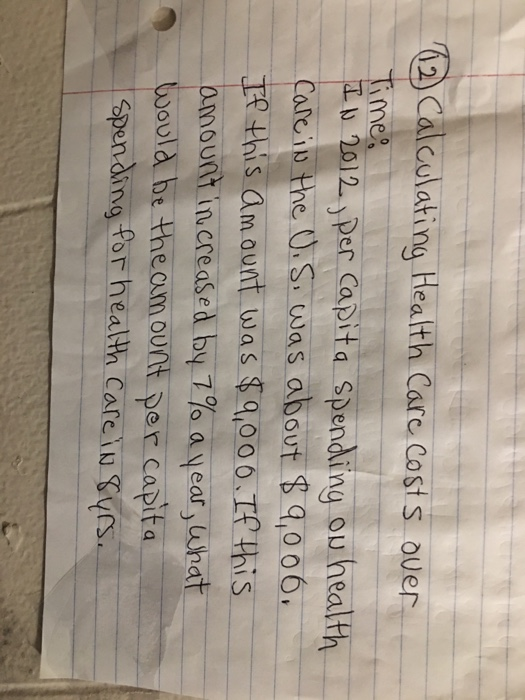 (12) Calculating Health Care Costs over
Time:
In 2012, per capita spending on health
Care in the U.S. was about $9,000.
If this amount was $9,000. If this
amount increased by 7% a year, what
would be the amount per capita
spending for health care in 8 yrs.